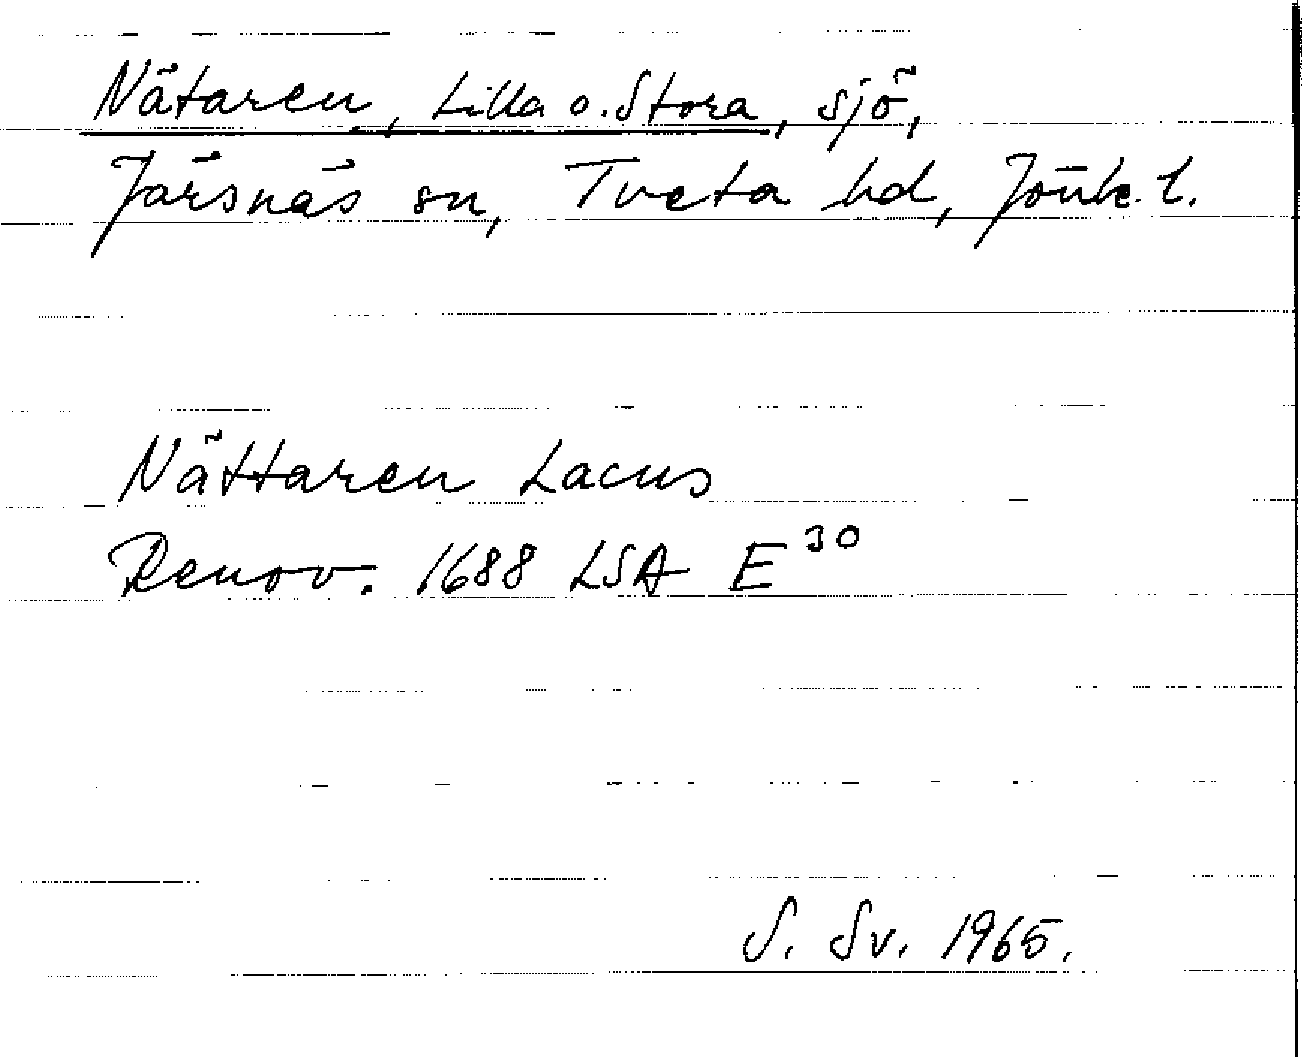 Nätaren, Lilla o. Stora, sjö,
Järsnäs sn, Tveta hd, Jönk. l.
Nättaren Lacus
Renov. 1688 LSA E³⁰
S. Sv. 1965.